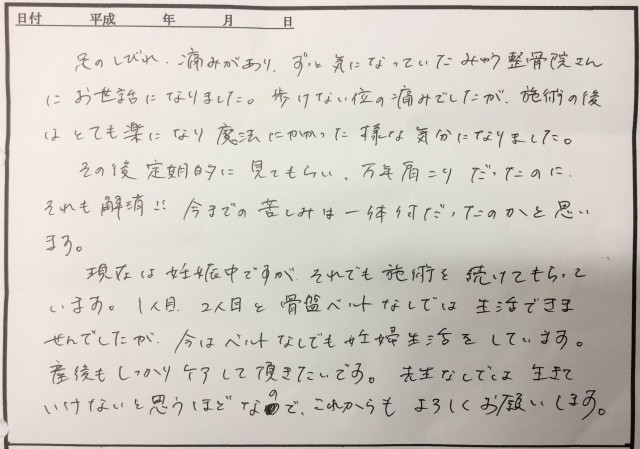 日付 平成 年 月 日
足のしびれ、痛みがあり、ずっと気になっていたみゅう整骨院さん
にお世話になりました。歩けない位の痛みでしたが、施術の後
はとても楽になり魔法にかかった様な気分になりました。
その後定期的に見てもらい、万年肩こりだったのに、
それも解消!! 今までの苦しみは一体何だったのかと思い
ます。
現在は妊娠中ですが、それでも施術を続けてもらって
います。1人目、2人目と骨盤ベルトなしでは生活できま
せんでしたが、今はベルトなしでも妊婦生活をしています。
産後もしっかりケアして頂きたいです。先生なしでは生きて
いけないと思うほどなので、これからもよろしくお願いします。